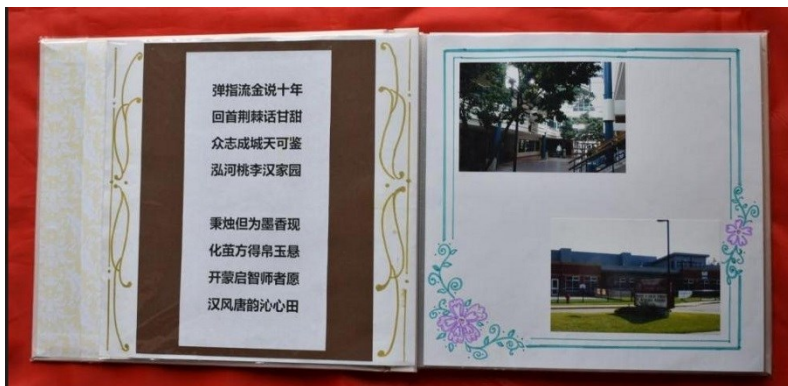 弹指流金说十年
回首荆棘话甘甜
众志成城天可鉴
泓河桃李汉家园
秉烛但为墨香现
化茧方得帛玉悬
开蒙启智师者愿
汉风唐韵沁心田